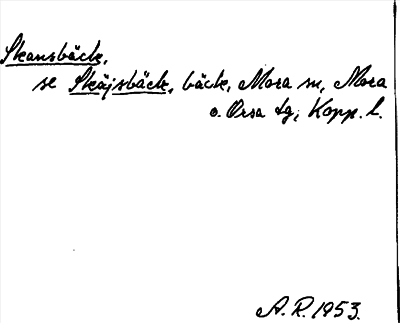 Skansbäck,
se Skäjsbäck, bäck, Mora sn, Mora
o. Orsa tg, Kopp. l.
A. R. 1953.